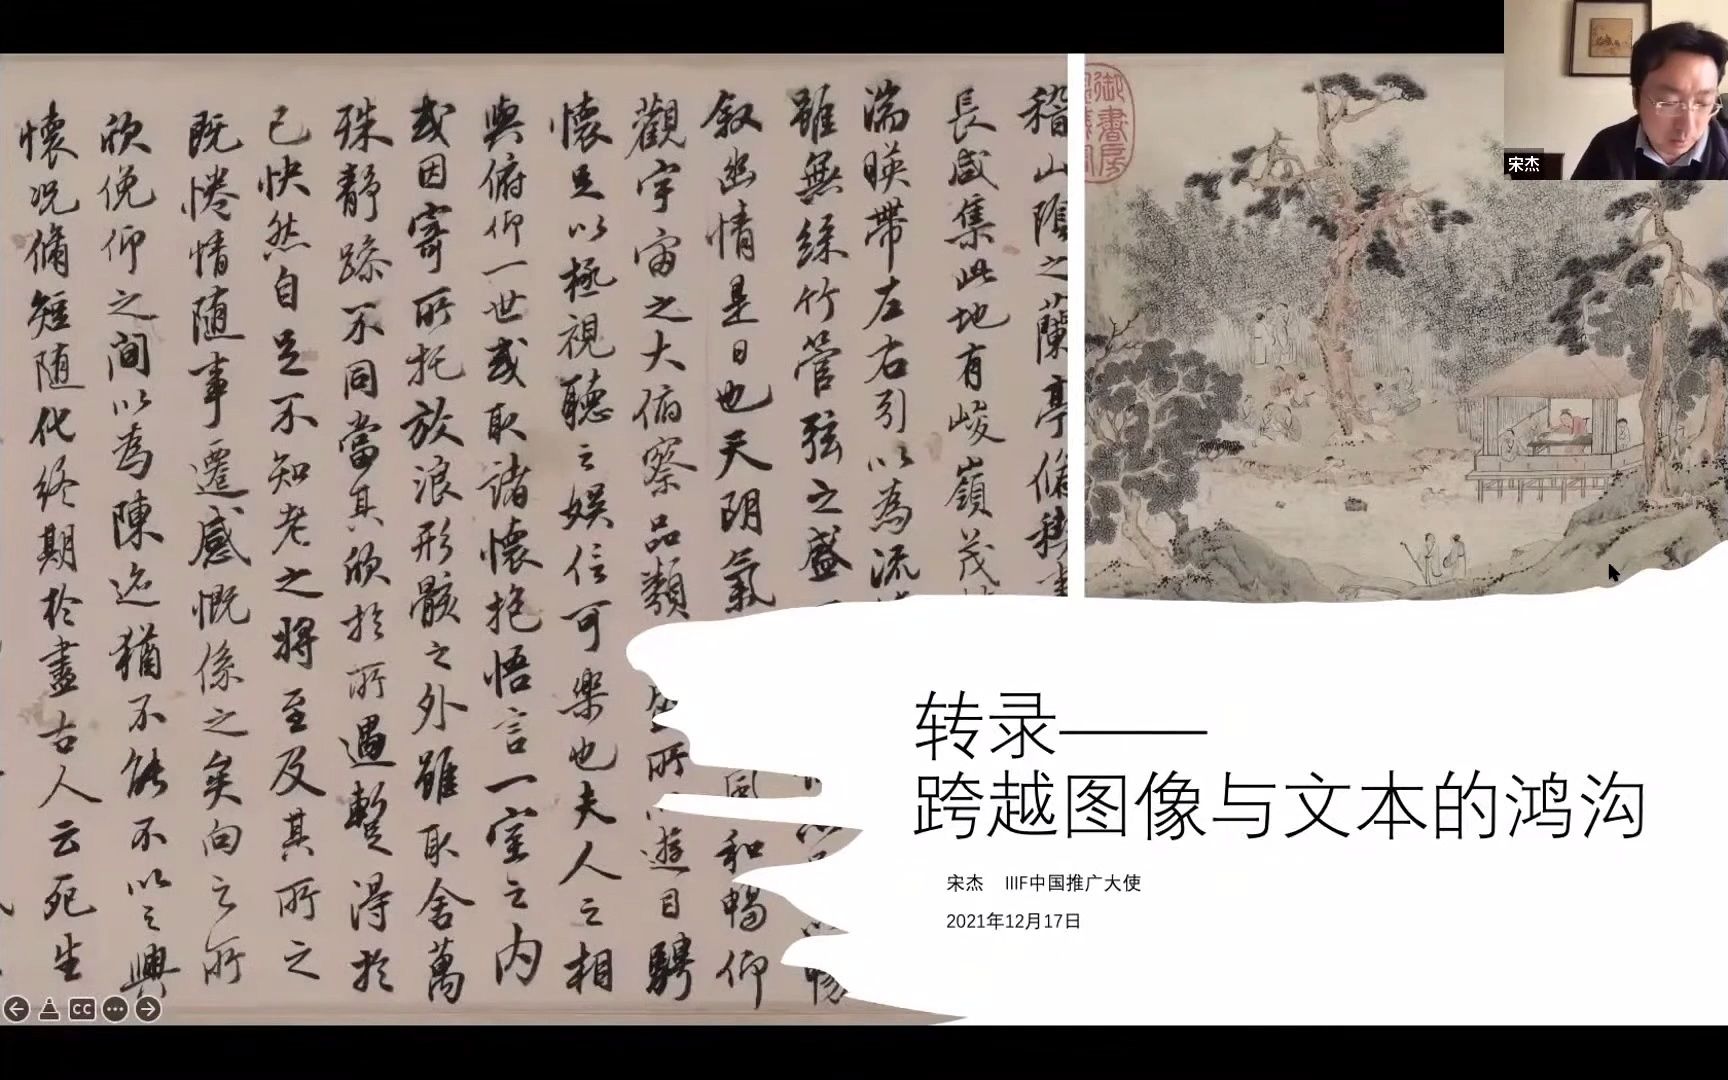 稽山陰之蘭亭脩禊
長咸集此地有峻嶺茂
湍暎帶左右引以為流
雖無絲竹管弦之盛
叙幽情是日也天朗氣
和暢仰
觀宇宙之大俯察品類
所
遊目騁
懷足以極視聽之娛信可樂也夫人之相
與俯仰一世或取諸懷抱悟言一室之內
或因寄所托放浪形骸之外雖取舍萬
殊靜躁不同當其欣於所遇蹔得於
己快然自足不知老之將至及其所之
既惓情隨事遷感慨係之矣向之所
欣俛仰之間以為陳迹猶不能不以之興
懷況脩短隨化終期於盡古人云死生
御書房
宋杰
转录——
跨越图像与文本的鸿沟
宋杰 IIIF中国推广大使
2021年12月17日
CC